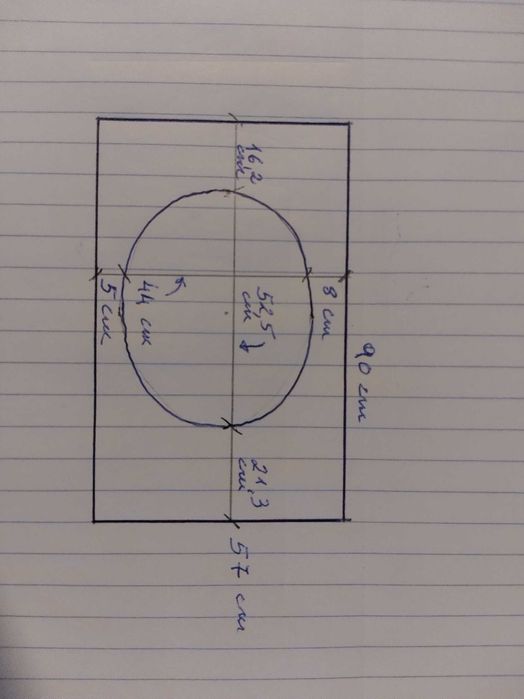 90 см
8 см
16,2
см
52,5
см
21,3
см
57 см
44 см
5 см